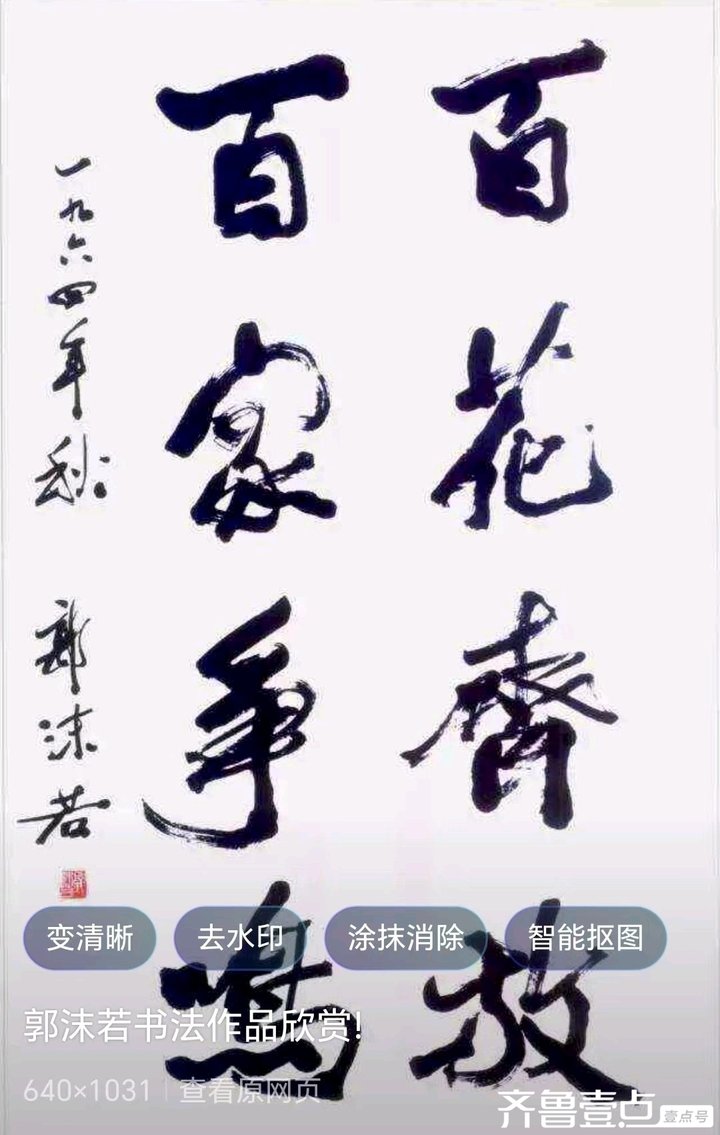 百花齊放
百家争鳴
一九六四年秋
郭沫若
变清晰
去水印
涂抹消除
智能抠图
郭沫若书法作品欣赏!
640×1031 | 查看原网页
齐鲁壹点 壹点号